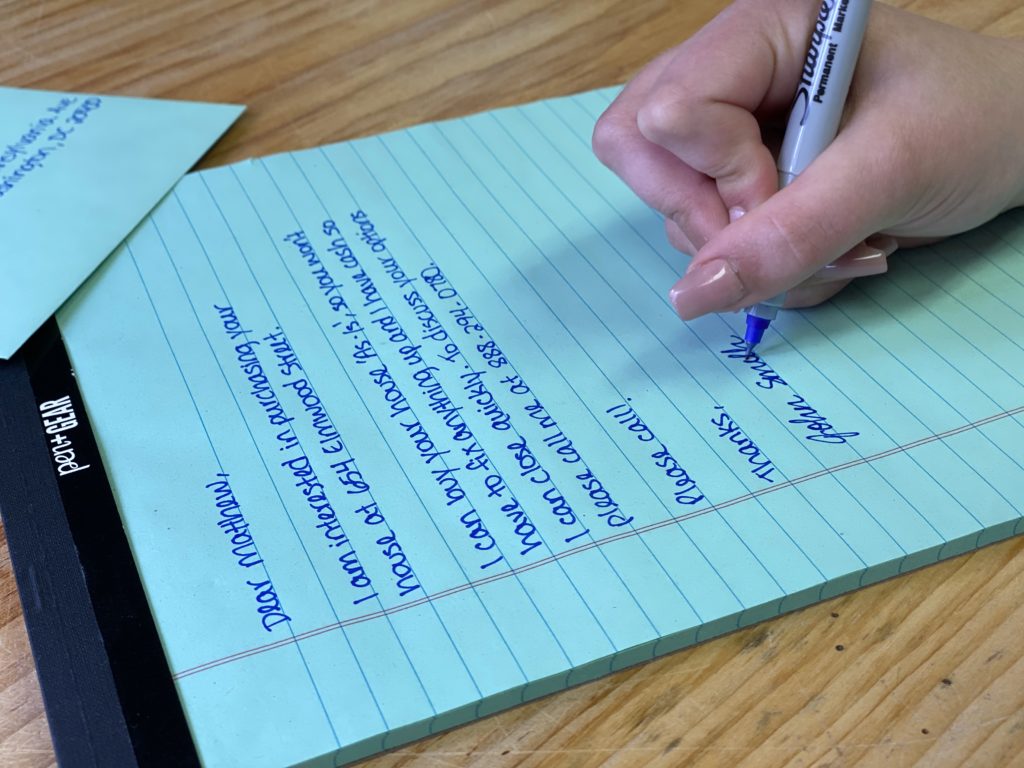 Dear Matthew,
I am interested in purchasing your
house at 654 Elmwood Street.
I can buy your house As-is, so you won't
have to fix anything up and I have cash so
I can close quickly. To discuss your options
please call me at 888-294-0780.
Please call!
Thanks,
John Smith
Ave
Washington, DC
pen+GEAR
Sharpie
Permanent Marker